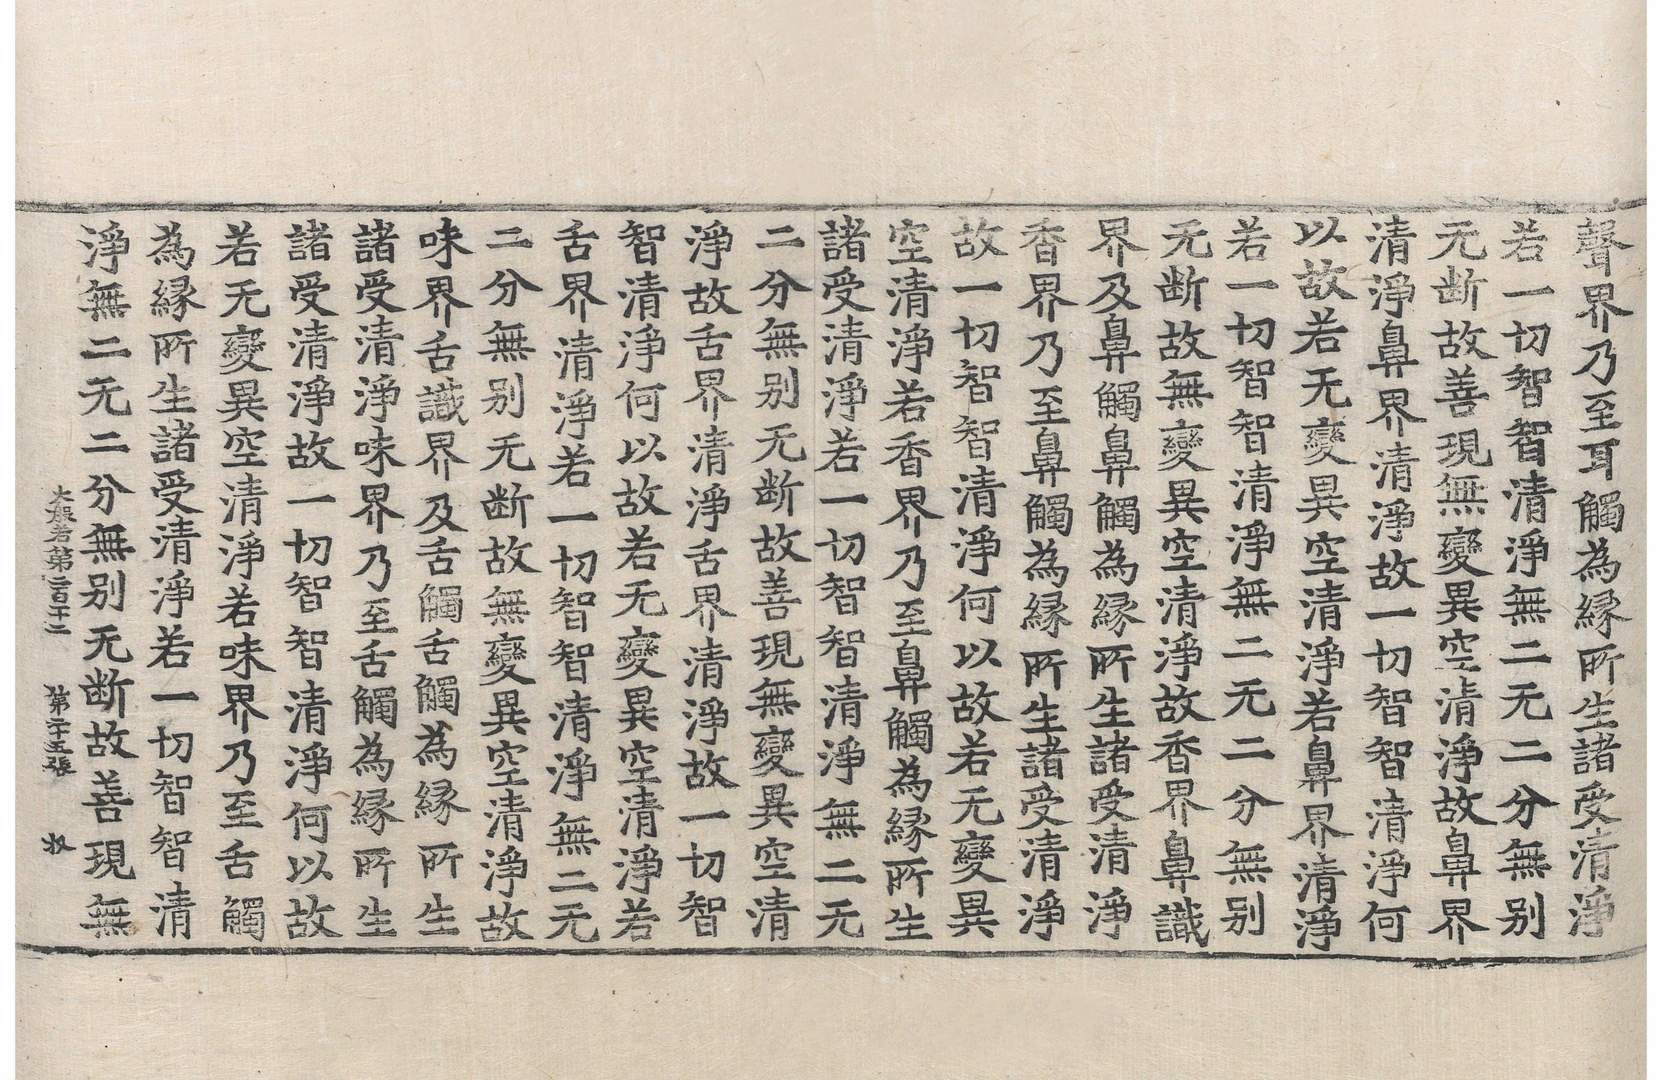 聲界乃至耳觸為縁所生諸受清淨
若一切智智清淨無二无二分無别
无断故善現無變異空清淨故鼻界
清淨鼻界清淨故一切智智清淨何
以故若无變異空清淨若鼻界清淨
若一切智智清淨無二无二分無别
无断故無變異空清淨故香界鼻識
界及鼻觸鼻觸為縁所生諸受清淨
香界乃至鼻觸為縁所生諸受清淨
故一切智智清淨何以故若无變異
空清淨若香界乃至鼻觸為縁所生
諸受清淨若一切智智清淨無二无
二分無别无断故善現無變異空清
淨故舌界清淨舌界清淨故一切智
智清淨何以故若无變異空清淨若
舌界清淨若一切智智清淨無二无
二分無别无断故無變異空清淨故
味界舌識界及舌觸舌觸為縁所生
諸受清淨味界乃至舌觸為縁所生
諸受清淨故一切智智清淨何以故
若无變異空清淨若味界乃至舌觸
為縁所生諸受清淨若一切智智清
淨無二无二分無别无断故善現無
大般若第二百十二 第二十五張 收